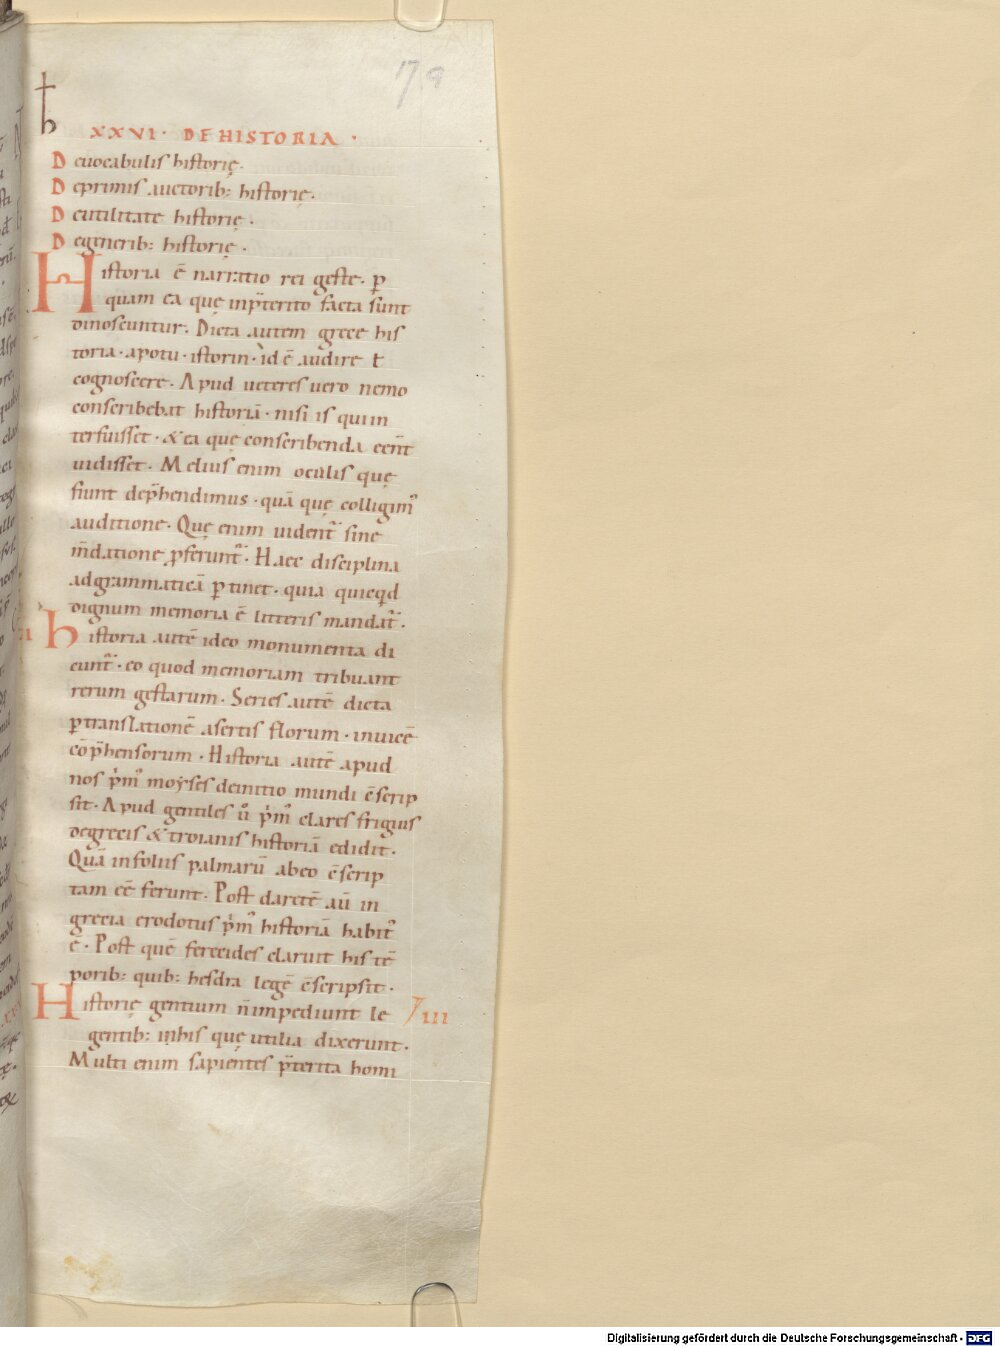 79
h
XXVI · DE HISTORIA ·
D euocabulis historię.
D eprimis auctorib: historię.
D eutilitate historię.
D egenerib: historię.
Historia ē narratio rei geste. p̲
quam ea quę inp̄terito facta sunt
dinoscuntur. Dicta autem grece his
toria · apotu · istorin · id ē audire ł
cognoscere. Apud ueteres uero nemo
conscribebat historiā · nisi is qui in
terfuisset · & ea quę conscribenda eēnt
uidisset. Melius enim oculis quę
fiunt dep̄hendimus · quā quę colligim᾿
auditione. Quę enim uident᷑ sine
m̄datione p̲ferunt᷑. Haec disciplina
adgrammaticā p̲tinet · quia quicq̇d
dignum memoria ē litteris mandat᷑.
historia autē ideo monumenta di
cunt᷑ · eo quod memoriam tribuant
rerum gestarum. Series autē dicta
p̲translationē asertis florum · inuicē
cōp̄hensorum. Historia autē apud
nos p̍m᾿ moyses deinitio mundi ēscrip
sit. Apud gentiles ů p̍m᾿ clares frigius
degrecis & troianis historiā edidit.
Quā infoliis palmarū abeo ēscrip
tam eē ferunt. Post daretē aū in
grecia erodotus p̍m᾿ historiā habit᾿
ē. Post quē ferecides claruit his tē
porib: quib: hesdra legē ēscripsit.
Historię gentium n̄impediunt le
gentib: inhis quę utilia dixerunt.
Multi enim sapientes p̄terita homi
Digitalisierung gefördert durch die Deutsche Forschungsgemeinschaft - DFG